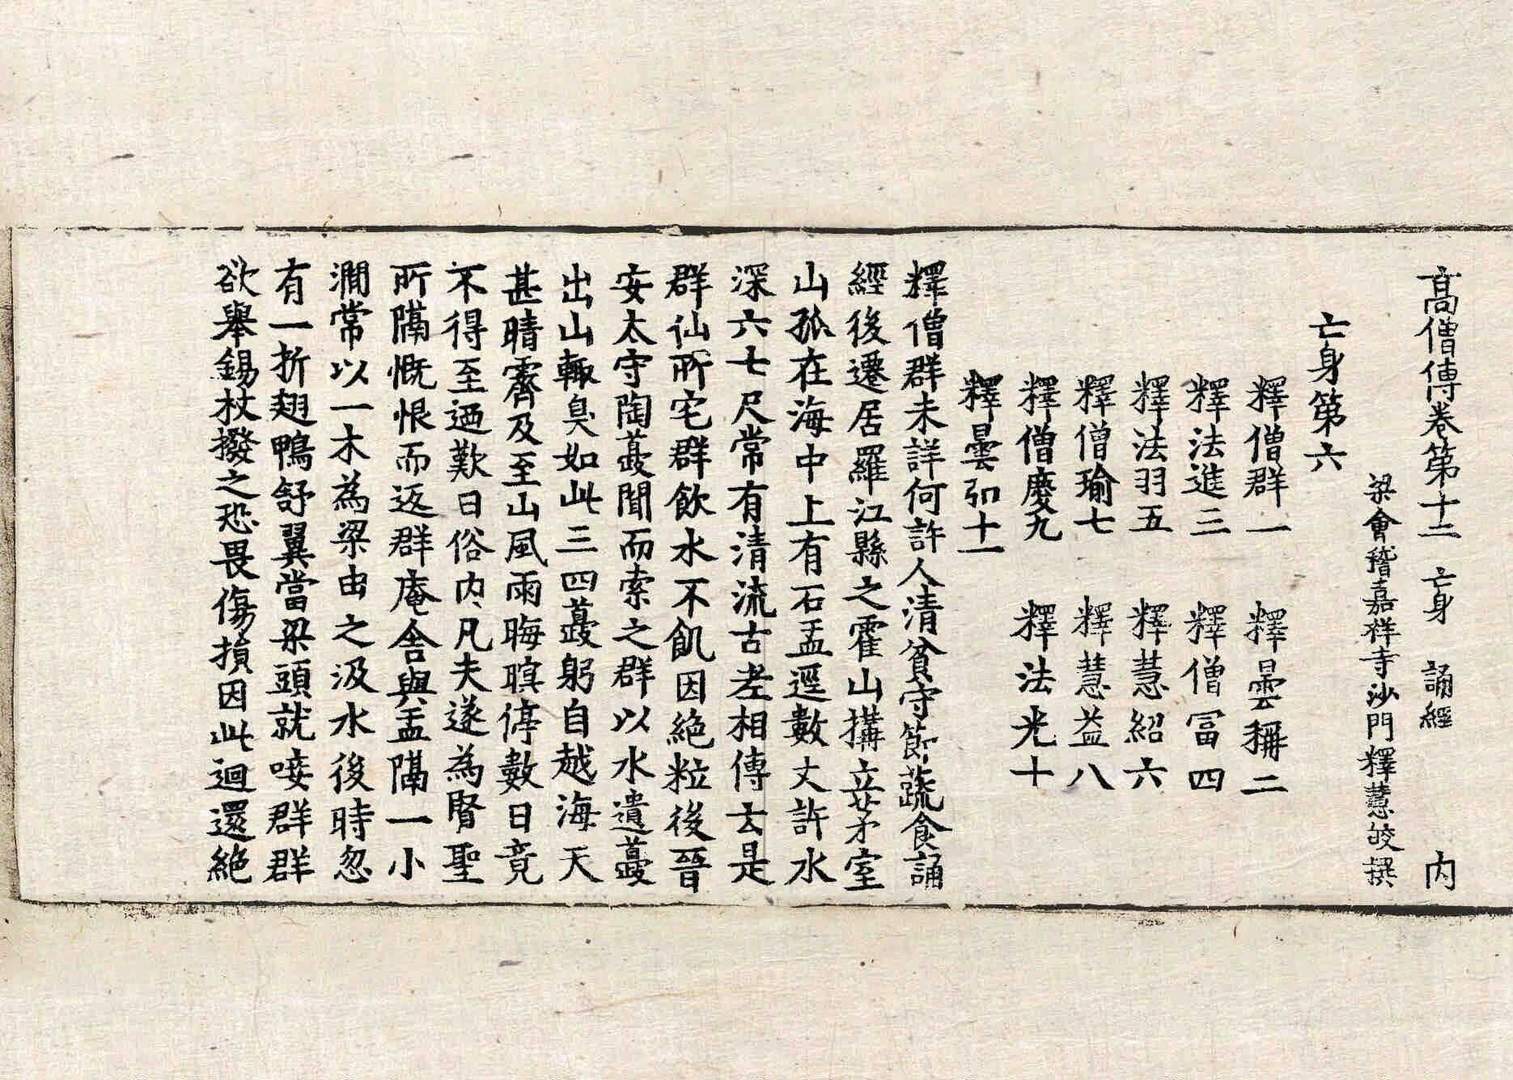 高僧傳卷第十二 亡身 誦經 內
梁會稽嘉祥寺沙門釋慧皎撰
亡身第六
釋僧群一 釋曇稱二
釋法進三 釋僧冨四
釋法羽五 釋慧紹六
釋僧瑜七 釋慧益八
釋僧慶九 釋法光十
釋曇弘十一
釋僧群未詳何許人清貧守節蔬食誦
經後遷居羅江縣之霍山搆立茅室
山孤在海中上有石盂逕數丈許水
深六七尺常有清流古老相傳云是
群仙所宅群飲水不飢因絕粒後晉
安太守陶蘷聞而索之群以水遺蘷
出山輒臭如此三四蘷躬自越海天
甚晴霽及至山風雨晦暝停數日竟
不得至迺歎曰俗內凡夫遂為賢聖
所隔慨恨而返群庵舍與盂隔一小
澗常以一木為梁由之汲水後時忽
有一折翅鴨舒翼當梁頭就唼群群
欲舉錫杖撥之恐畏傷損因此迴還絕